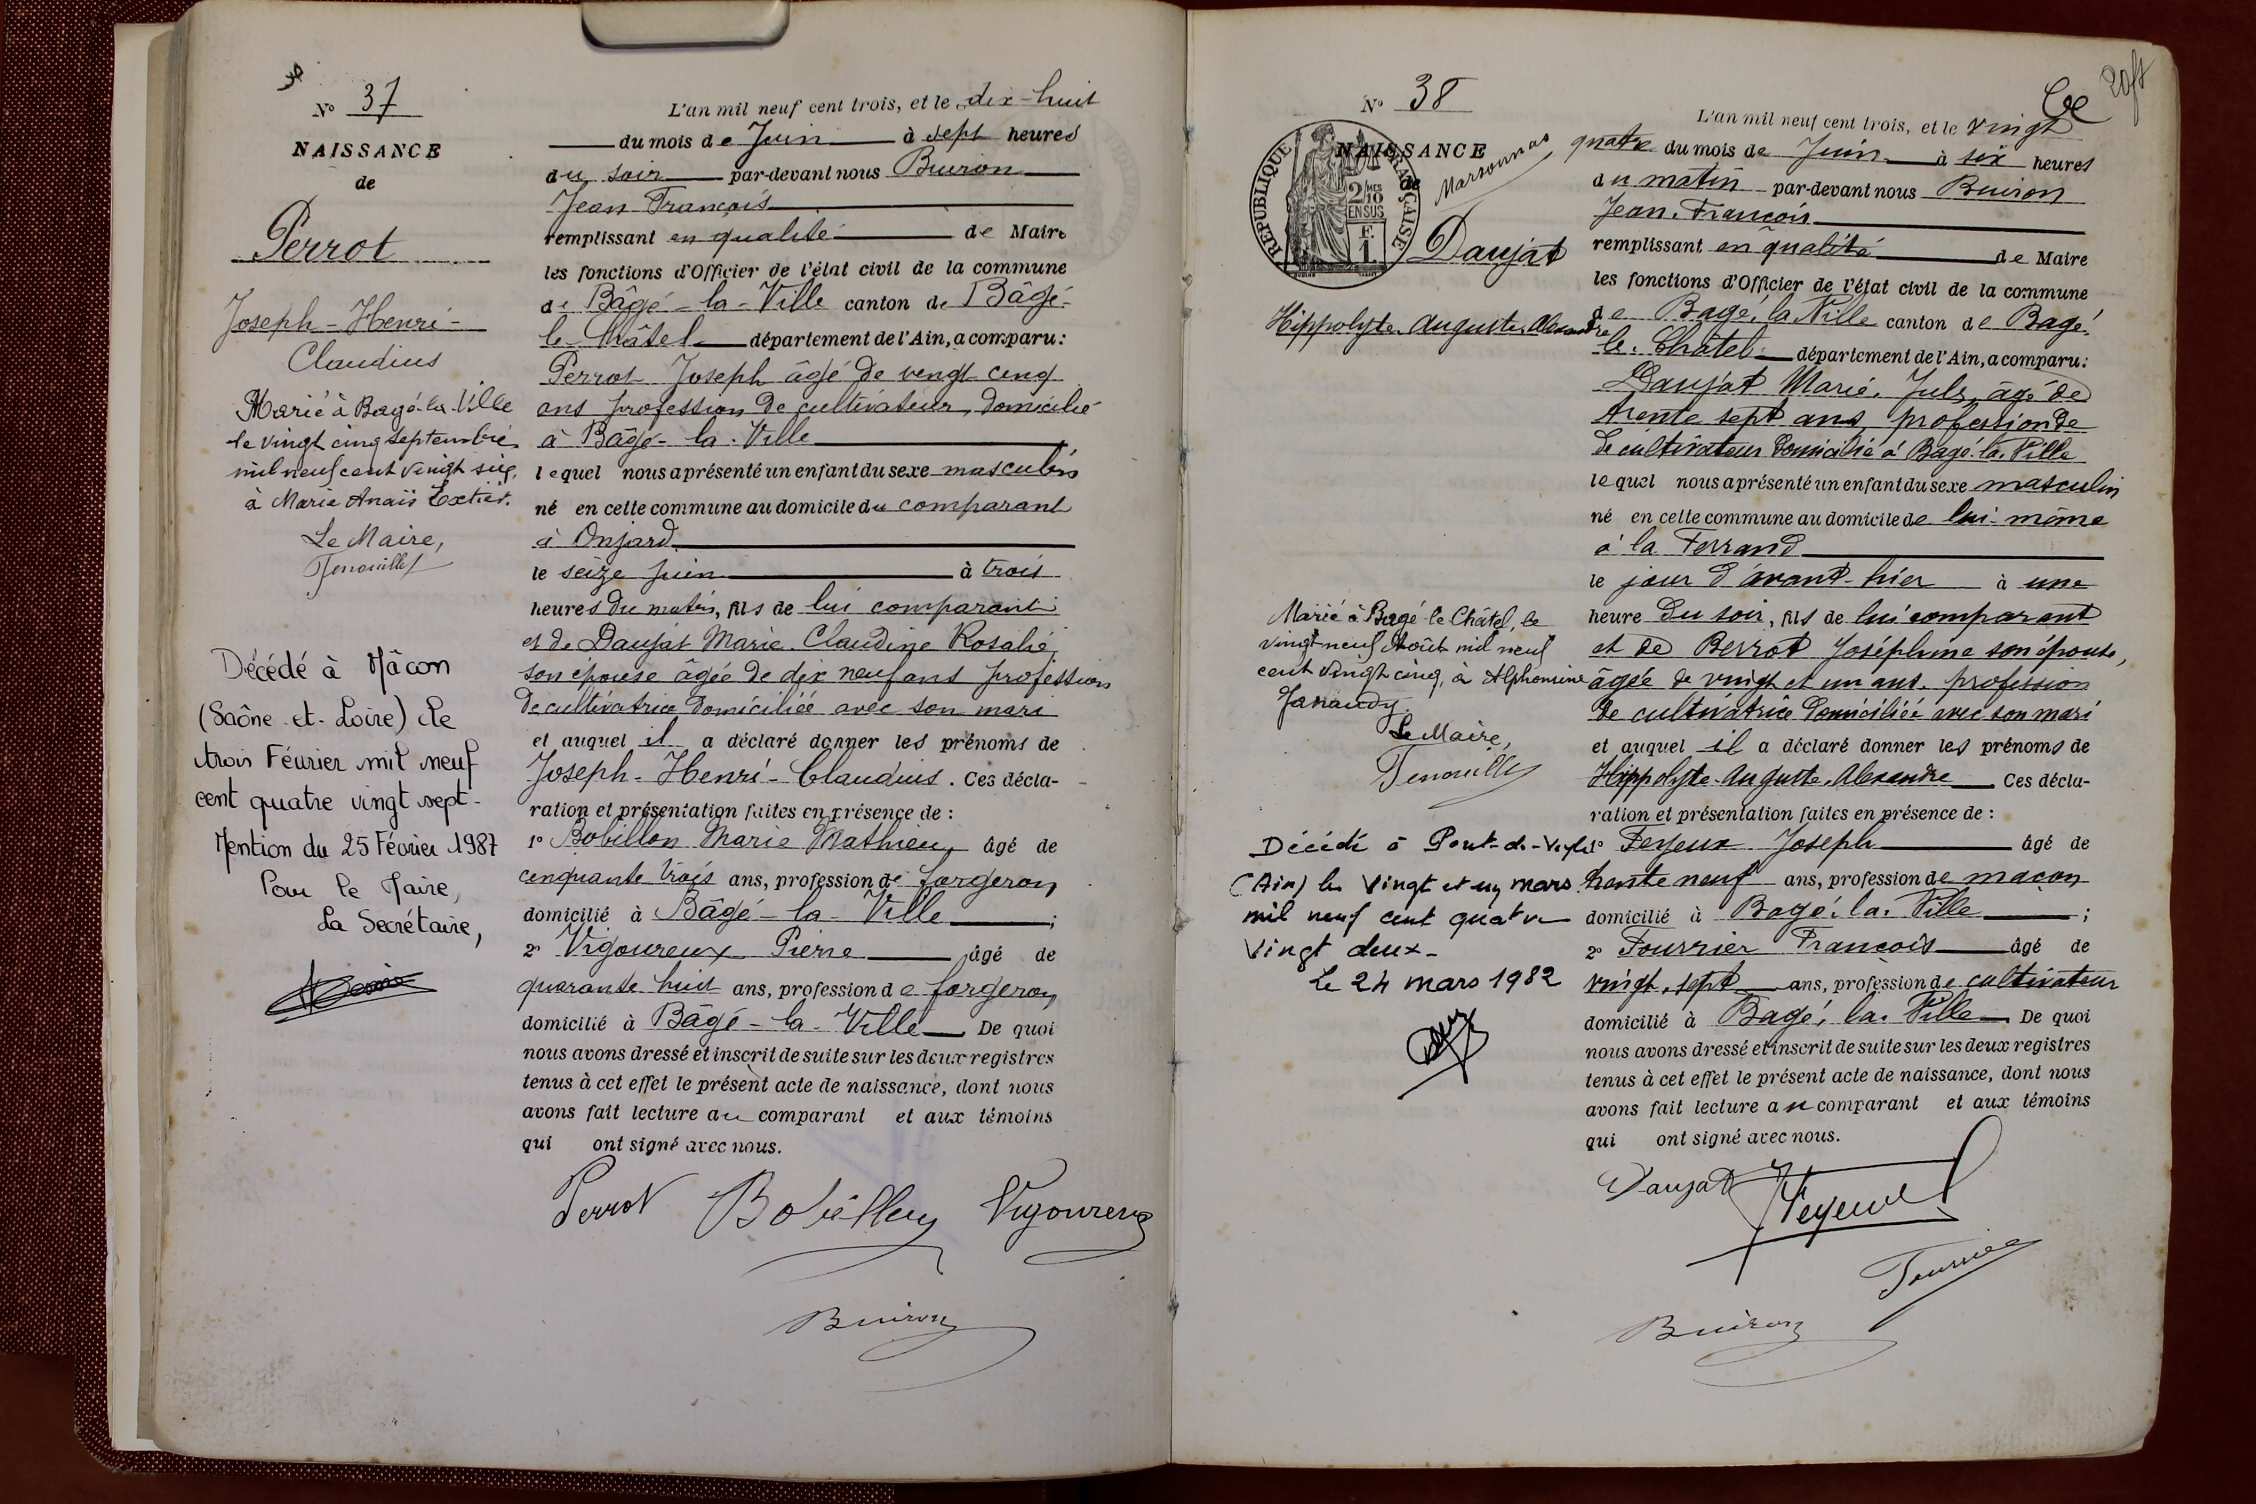 N° 37
NAISSANCE
de
Perrot
Joseph-Henri-
Claudius
Marié à Bagé-la-Ville
le vingt cinq septembre
mil neuf cent vingt six,
à Marie Anaïs Extier.
Le Maire,
Décédé à Mâcon
(Saône-et-Loire) le
trois Février mil neuf
cent quatre vingt sept-
Mention du 25 Février 1987
Pour le Maire,
La Secrétaire,
L'an mil neuf cent trois, et le dix-huit
du mois de Juin à sept heures
du soir par-devant nous Buiron
Jean François
remplissant en qualité de Maire
les fonctions d'Officier de l'état civil de la commune
de Bâgé-la-Ville canton de Bâgé-
le-Châtel département de l'Ain, a comparu:
Perrot Joseph âgé de vingt cinq
ans profession de cultivateur, domicilié
à Bâgé-la-Ville
lequel nous a présenté un enfant du sexe masculin
né en cette commune au domicile du comparant
à Onjard
le seize juin à trois
heures du matin, fils de lui comparant
et de Daujat Marie Claudine Rosalie,
son épouse âgée de dix neuf ans profession
de cultivatrice domiciliée avec son mari
et auquel il a déclaré donner les prénoms de
Joseph-Henri-Claudius. Ces décla-
ration et présentation faites en présence de :
1° Bobillon Marie Mathieu, âgé de
cinquante trois ans, profession de forgeron
domicilié à Bâgé-la-Ville ;
2° Vigoureux Pierre âgé de
quarante huit ans, profession de forgeron
domicilié à Bâgé-la-Ville De quoi
nous avons dressé et inscrit de suite sur les deux registres
tenus à cet effet le présent acte de naissance, dont nous
avons fait lecture au comparant et aux témoins
qui ont signé avec nous.
Perrot Bobillon Vigoureux
Buiron
N° 38
NAISSANCE
de
RÉPUBLIQUE FRANÇAISE
2/10 EN SUS
Marsonnas
Daujat
Hippolyte Auguste Alexandre
Marié à Bagé-le-Châtel, le
vingt neuf Août mil neuf
cent vingt cinq, à Alphonsine
Janaudy.
Le Maire,
Décédé à Pont-de-Veyle
(Ain) le vingt et un mars
mil neuf cent quatre
vingt deux-
Le 24 mars 1982
L'an mil neuf cent trois, et le vingt
quatre du mois de Juin à six heures
du matin par-devant nous Buiron
Jean François
remplissant en qualité de Maire
les fonctions d'Officier de l'état civil de la commune
de Bagé la Ville canton de Bagé
le Châtel département de l'Ain, a comparu:
Daujat Marie Jules, âgé de
trente sept ans, profession de
de cultivateur domicilié à Bagé la Ville
lequel nous a présenté un enfant du sexe masculin
né en cette commune au domicile de lui-même
à la Ferrand
le jour d'avant-hier à une
heure du soir, fils de lui comparant
et de Berrod Joséphine son épouse,
âgée de vingt et un ans, profession
de cultivatrice domiciliée avec son mari
et auquel il a déclaré donner les prénoms de
Hippolyte-Auguste-Alexandre Ces décla-
ration et présentation faites en présence de :
1° Feyeux Joseph âgé de
trente neuf ans, profession de maçon
domicilié à Bagé la Ville ;
2° Fournier François âgé de
vingt-sept ans, profession de cultivateur
domicilié à Bagé la Ville De quoi
nous avons dressé et inscrit de suite sur les deux registres
tenus à cet effet le présent acte de naissance, dont nous
avons fait lecture au comparant et aux témoins
qui ont signé avec nous.
Daujat Feyeux
Fournier
Buiron